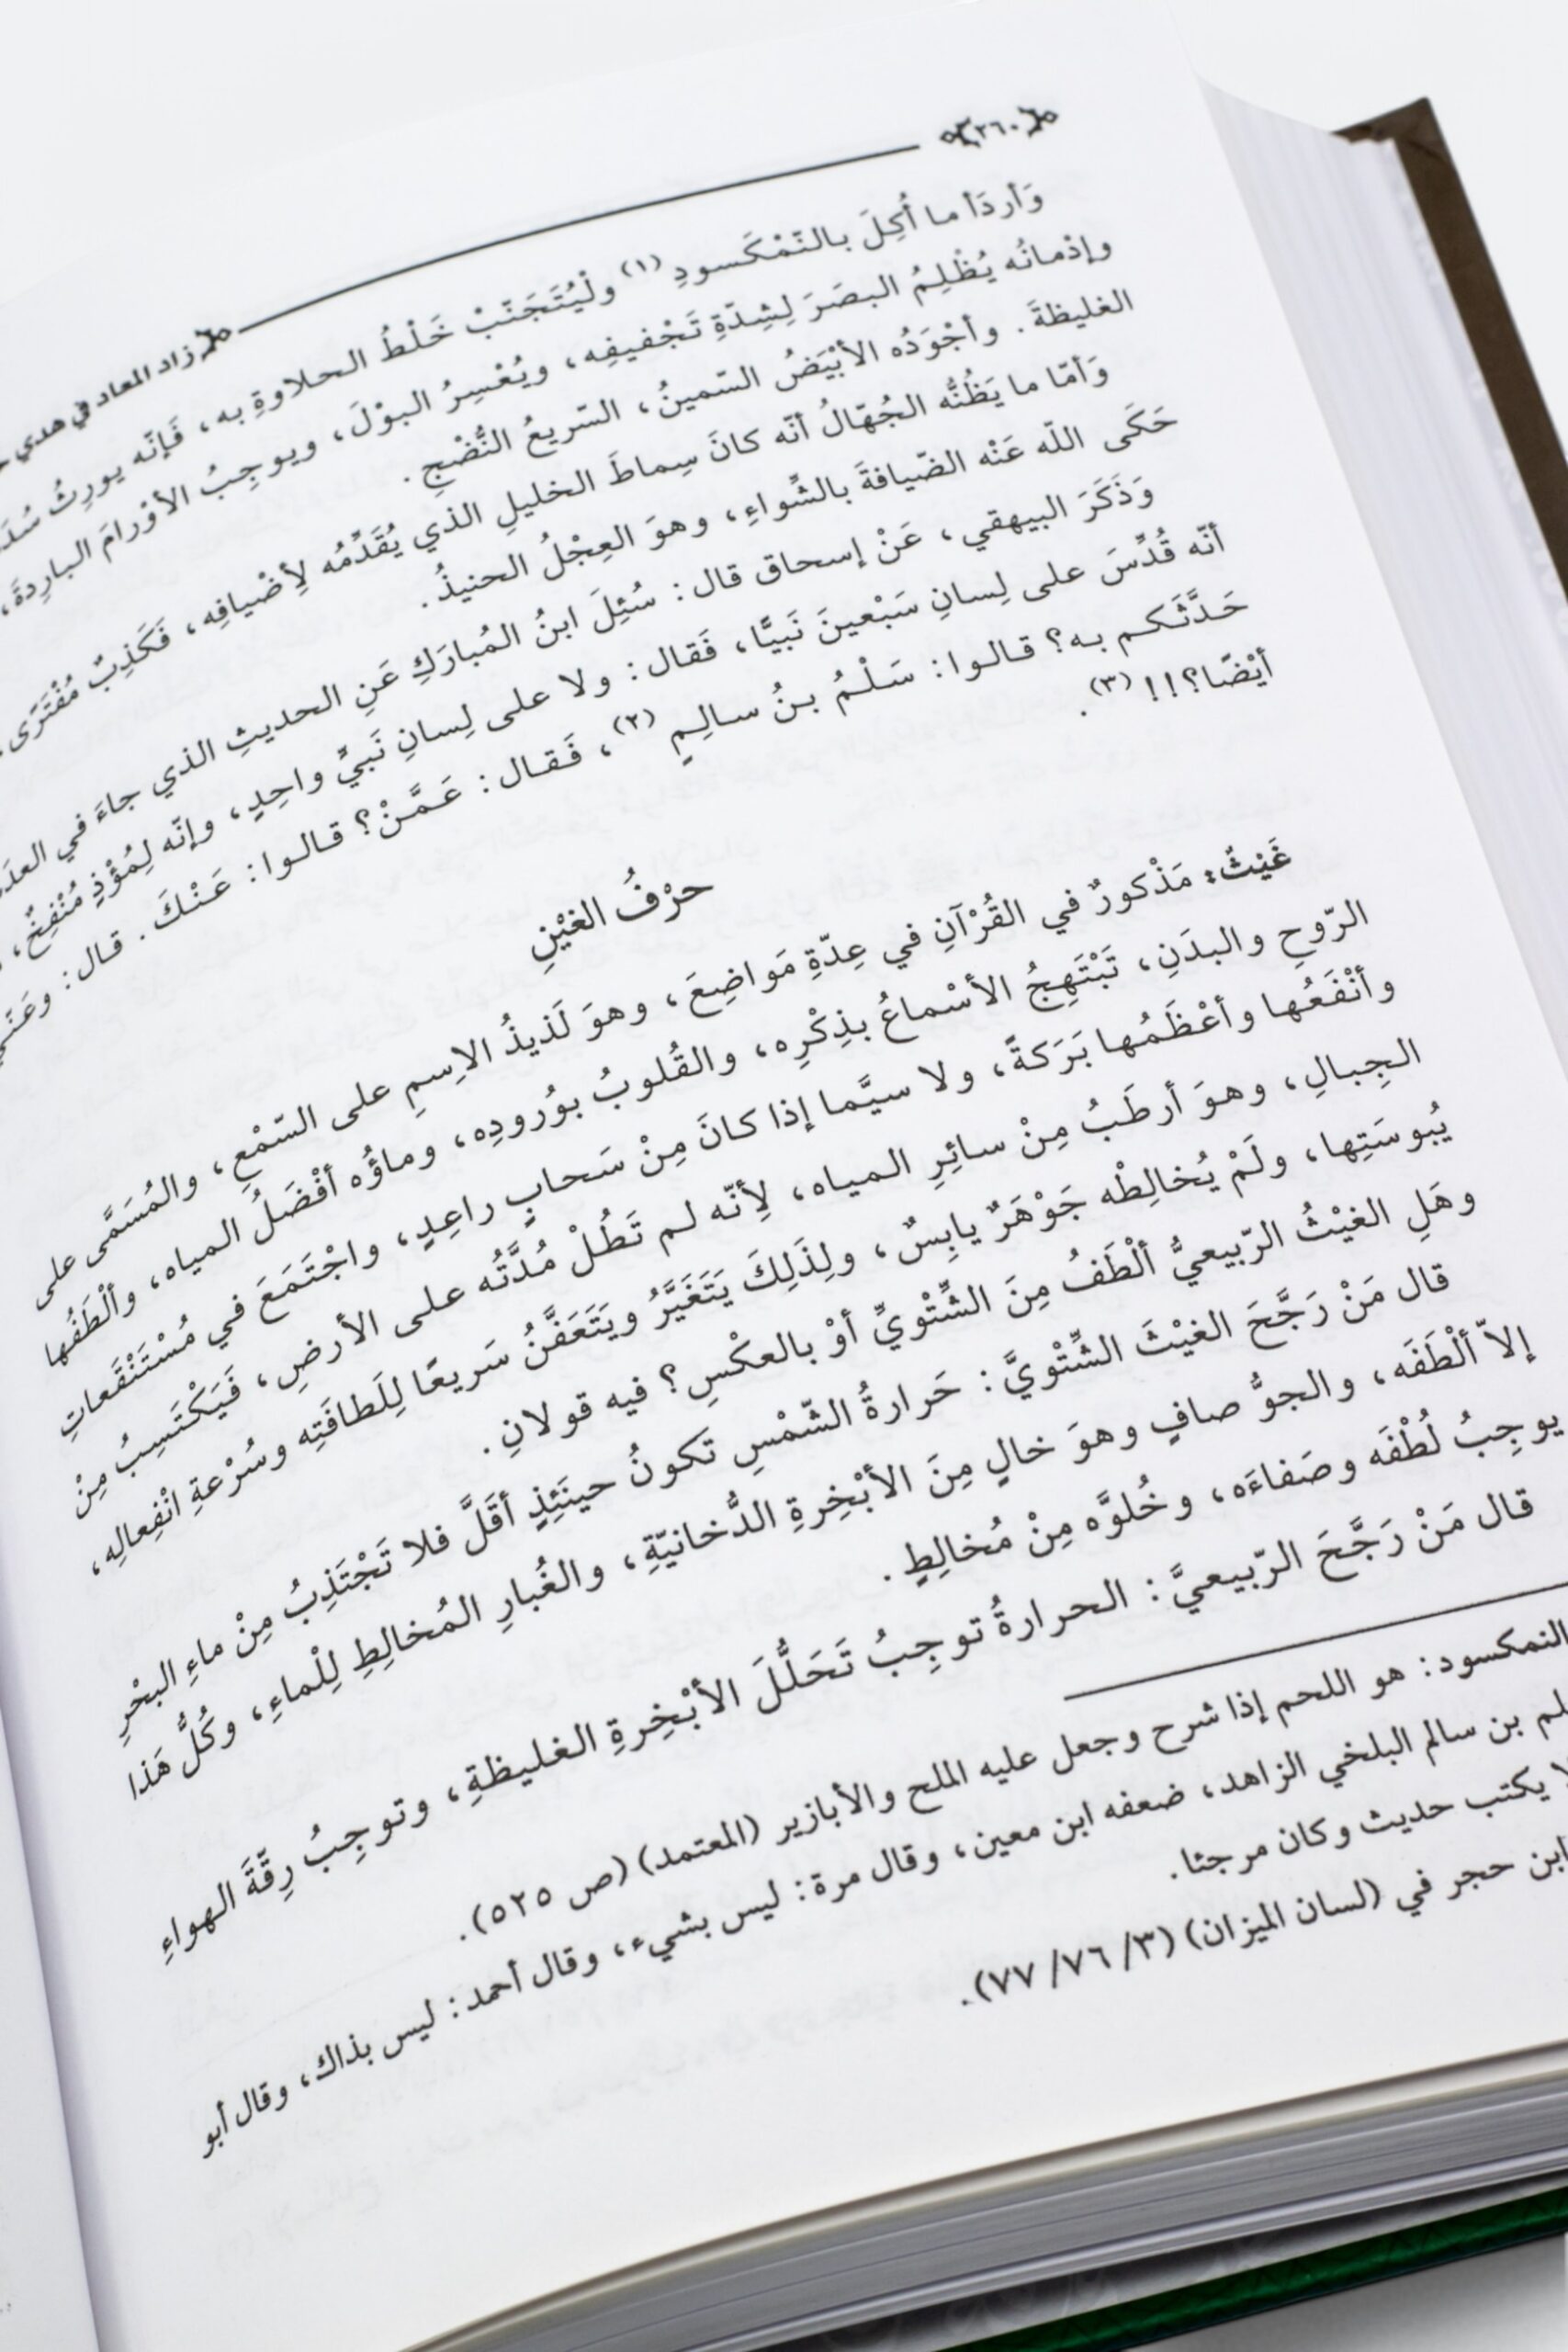 ٣٦٠ زاد المعاد في هدي
وَأردَأ ما أُكِلَ بالنّمْكَسودِ (١) ولْيُتَجَنّبْ خَلْطُ الحلاوةِ به، فَإنّه يورِثُ
وإدْمانُه يُظْلِمُ البصَرَ لِشِدّةِ تَجْفيفِه، ويُعْسِرُ البوْلَ، ويوجِبُ الأوْرامَ البارِدةَ،
الغليظةَ. وأجْوَدُه الأبْيَضُ السّمينُ، السّريعُ النُّضْجِ.
وَأمّا ما يَظُنُّه الجُهّالُ أنّه كانَ سِماطَ الخليلِ الذي يُقَدِّمُه لِأضْيافِه، فَكَذِبٌ مُفْتَرًى،
حَكَى اللّه عَنْه الضّيافةَ بالشِّواءِ، وهوَ العِجْلُ الحنيذُ.
وَذَكَرَ البيهقي، عَنْ إسحاق قال: سُئِلَ ابنُ المُبارَكِ عَنِ الحديثِ الذي جاءَ في
أنّه قُدِّسَ على لِسانِ سَبْعينَ نَبيًّا، فَقال: ولا على لِسانِ نَبيٍّ واحِدٍ، وإنّه لِمُؤْذٍ مُنْفِخٌ،
حَدَّثَكم به؟ قالوا: سَلْمُ بنُ سالِمٍ (٢)، فَقال: عَمَّنْ؟ قالوا: عَنْكَ. قال: وعَنّي
أيْضًا؟!! (٣).
حرْفُ الغيْنِ
غَيْثٌ: مَذْكورٌ في القُرْآنِ في عِدّةِ مَواضِعَ، وهوَ لَذيذُ الاِسمِ على السّمْعِ، والمُسَمَّى على
الرّوحِ والبدَنِ، تَبْتَهِجُ الأسْماعُ بذِكْرِه، والقُلوبُ بوُرودِه، وماؤُه أفْضَلُ المياه، وألْطَفُها
وأنْفَعُها وأعْظَمُها بَرَكةً، ولا سيَّما إذا كانَ مِنْ سَحابٍ راعِدٍ، واجْتَمَعَ في مُسْتَنْقَعاتِ
الجِبالِ، وهوَ أرطَبُ مِنْ سائِرِ المياه، لِأنّه لم تَطُلْ مُدَّتُه على الأرضِ، فَيَكْتَسِبُ مِنْ
يُبوسَتِها، ولَمْ يُخالِطْه جَوْهَرٌ يابِسٌ، ولِذَلِكَ يَتَغَيَّرُ ويَتَعَفَّنُ سَريعًا لِلَطافَتِه وسُرْعةِ انْفِعالِه،
وهَلِ الغيْثُ الرّبيعيُّ ألْطَفُ مِنَ الشِّتْويِّ أوْ بالعكْسِ؟ فيه قولانِ.
قال مَنْ رَجَّحَ الغيْثَ الشِّتْويَّ: حَرارةُ الشّمْسِ تَكونُ حينَئِذٍ أقَلَّ فلا تَجْتَذِبُ مِنْ ماءِ البحْرِ
إلاّ ألْطَفَه، والجوُّ صافٍ وهوَ خالٍ مِنَ الأبْخِرةِ الدُّخانيّةِ، والغُبارِ المُخالِطِ لِلْماءِ، وكُلُّ هَذا
يوجِبُ لُطْفَه وصَفاءَه، وخُلوَّه مِنْ مُخالِطٍ.
قال مَنْ رَجَّحَ الرّبيعيَّ: الحرارةُ توجِبُ تَحَلُّلَ الأبْخِرةِ الغليظةِ، وتوجِبُ رِقّةَ الهواءِ
النمكسود: هو اللحم إذا شرح وجعل عليه الملح والأبازير (المعتمد) (ص ٥٢٥).
بن سالم البلخي الزاهد، ضعفه ابن معين، وقال مرة: ليس بشيء، وقال أحمد: ليس بذاك، وقال أبو
يكتب حديث وكان مرجئا.
ابن حجر في (لسان الميزان) (٣/ ٧٦/ ٧٧).